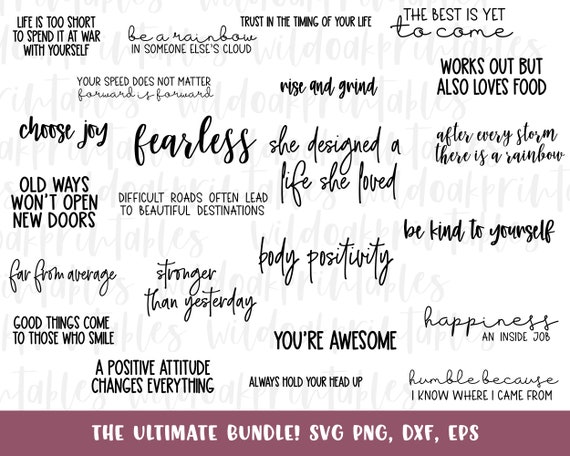 LIFE IS TOO SHORT
TO SPEND IT AT WAR
WITH YOURSELF
be a rainbow
IN SOMEONE ELSE'S CLOUD
TRUST IN THE TIMING OF YOUR LIFE
THE BEST IS YET
to come
YOUR SPEED DOES NOT MATTER
forward is forward
rise and grind
WORKS OUT BUT
ALSO LOVES FOOD
choose joy
fearless
she designed a
life she loved
after every storm
there is a rainbow
OLD WAYS
WON'T OPEN
NEW DOORS
DIFFICULT ROADS OFTEN LEAD
TO BEAUTIFUL DESTINATIONS
be kind to yourself
body positivity
far from average
stronger
than yesterday
GOOD THINGS COME
TO THOSE WHO SMILE
YOU'RE AWESOME
happiness
AN INSIDE JOB
A POSITIVE ATTITUDE
CHANGES EVERYTHING
ALWAYS HOLD YOUR HEAD UP
humble because
I KNOW WHERE I CAME FROM
wildoakprintables
THE ULTIMATE BUNDLE! SVG PNG, DXF, EPS